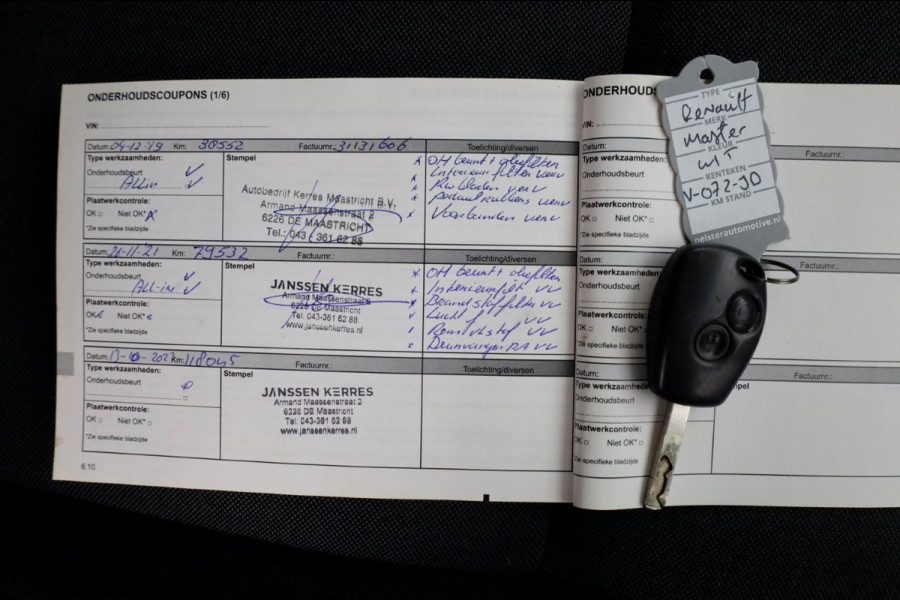 ONDERHOUDSCOUPONS (1/6)
VIN:
Datum: 04-12-19 Km: 38552 Factuurnr.: 31131606
Type werkzaamheden:
Onderhoudsbeurt ✓
ALL-in ✓
Plaatwerkcontrole:
OK □ Niet OK*
*Zie specifieke bladzijde
Stempel
Autobedrijf Kerres Maastricht B.V.
Armand Maassenstraat 2
6226 DE MAASTRICHT
Tel.: 043 - 361 62 88
Toelichting/diversen
OH beurt + oliefilter
Interieurfilter verv
verv
verv
verv
Datum: 26-11-21 Km: 79532 Factuurnr.:
Type werkzaamheden:
Onderhoudsbeurt ✓
ALL-in ✓
Plaatwerkcontrole:
OK Niet OK*
*Zie specifieke bladzijde
Stempel
JANSSEN KERRES
Armand Maassenstraat 2
6226 DE Maastricht
Tel: 043-361 62 88
www.janssenkerres.nl
Toelichting/diversen
OH beurt + oliefilter
Interieurfilt VV
Brandstoffilter VV
VV
Remvloeistof VV
VV
Datum: Km: 118045 Factuurnr.:
Type werkzaamheden:
Onderhoudsbeurt
Plaatwerkcontrole:
OK □ Niet OK* □
*Zie specifieke bladzijde
Stempel
JANSSEN KERRES
Armand Maassenstraat 2
6226 DE Maastricht
Tel: 043-361 62 88
www.janssenkerres.nl
Toelichting/diversen
6.10
ONDERHOUDS
VIN:
Datum:
Type werkzaamheden:
Onderhoudsbeurt
Plaatwerkcontrole:
OK □ Niet OK* □
*Zie specifieke bladzijde
Factuurnr.:
Datum:
Type werkzaamheden:
Onderhoudsbeurt
Plaatwerkcontrole:
OK □ Niet OK*
*Zie specifieke bladzijde
Factuurnr.:
Datum:
Type werkzaamheden:
Onderhoudsbeurt
Plaatwerkcontrole:
OK □ Niet OK* □
*Zie specifieke bladzijde
Factuurnr.:
TYPE
Renault
MERK
Master
KLEUR
WIT
KENTEKEN
V-072-JD
KM STAND
pelsterautomotive.nl